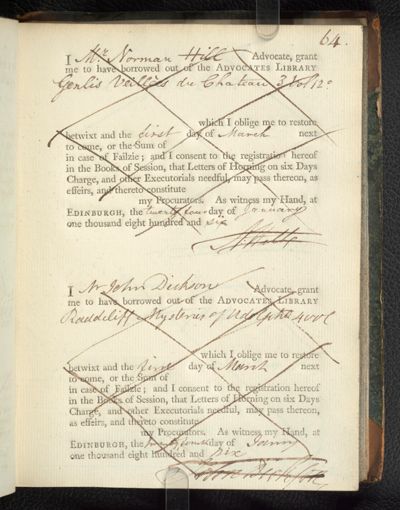 64.
I Mr. Norman Hill Advocate, grant
me to have borrowed out of the ADVOCATES LIBRARY
Genlis Veillées du Chateau 3 vol 12o
which I oblige me to restore
betwixt and the first day of March next
to come, or the Sum of
in case of Failzie; and I consent to the registration hereof
in the Books of Session, that Letters of Horning on six Days
Charge, and other Executorials needful, may pass thereon, as
effeirs, and thereto constitute
my Procurators. As witness my Hand, at
EDINBURGH, the twenty four day of January
one thousand eight hundred and six
I Mr John Dickson Advocate, grant
me to have borrowed out of the ADVOCATES LIBRARY
Radcliff Mysteries of Udolpho 4 vol
which I oblige me to restore
betwixt and the first day of March next
to come, or the Sum of
in case of Failzie; and I consent to the registration hereof
in the Books of Session, that Letters of Horning on six Days
Charge, and other Executorials needful, may pass thereon,
as effeirs, and thereto constitute
my Procurators. As witness my Hand, at
EDINBURGH, the day of
one thousand eight hundred and six
John Dickson